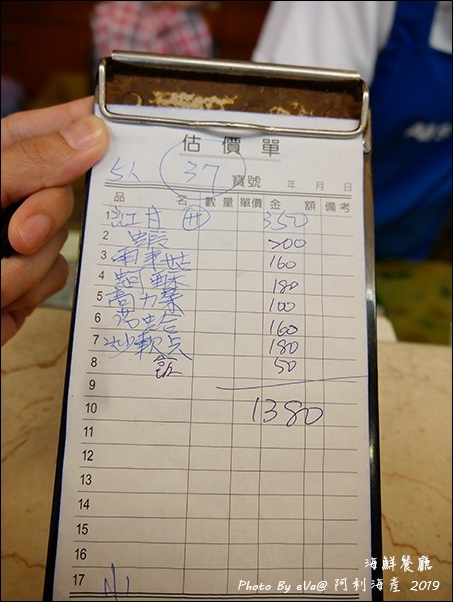 估價單
5人 37 寶號 年 月 日
品名 數量 單價 金額 備考
1 紅丼 卄 350
2 200
3 160
4 蚵酥 180
5 高力菜 100
6 蛤 160
7 炒軟点 180
8 飯 50
9
10 1380
11
12
13
14
15
16
17 小
海鮮餐廳
Photo By eVa@ 阿利海產 2019